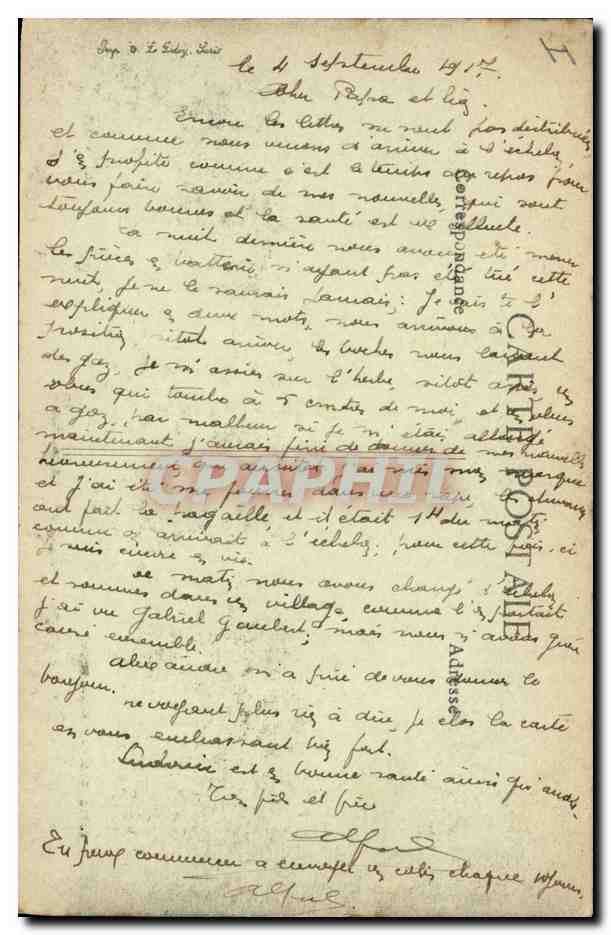 I
le 4 Septembre 1917.
Cher Papa et
Encore les lettres ne sont pas distribuées
et comme nous venons d'arriver à l'échelon,
j'en profite comme c'est le temps du repos pour
vous faire savoir de mes nouvelles, qui sont
toujours bonnes et la santé est excellente.
La nuit dernière nous avons été mener
les pièces en batterie, n'ayant pas été tué cette
nuit, je ne le saurais jamais; Je vais te l'
expliquer en deux mots, nous arrivons à la
position, sitôt arriver, les boches nous lancent
des gaz, je m'assies sur l'herbe, sitôt après, un
obus qui tombe à 5 mètres de moi, et un obus
à gaz, par malheur si je m'étais allongé
maintenant j'aurais fini de donner de mes nouvelles
heureusement j'ai mis mon masque
et j'ai été me fourrer dans une sape, les chevaux
ont fait la pagaille et il était 1H du matin
comme on arrivait à l'échelon; pour cette fois-ci
je suis encore en vie.
Ce matin nous avons changé d'échelon
et sommes dans un village comme l'en partait
j'ai vu Gabriel Gaubert; mais nous n'avons guère
causé ensemble.
Alexandre m'a prié de vous donner le
bonjour.
ne voyant plus rien à dire, je clos la carte
en vous embrassant bien fort.
Ludovic est en bonne santé ainsi qu'
Ton fils et frère
Alfred
Tu peux commencer à envoyer un colis chaque 10 jours.
Alfred.
CARTE POSTALE
Correspondance
Adresse
CPAPHIL